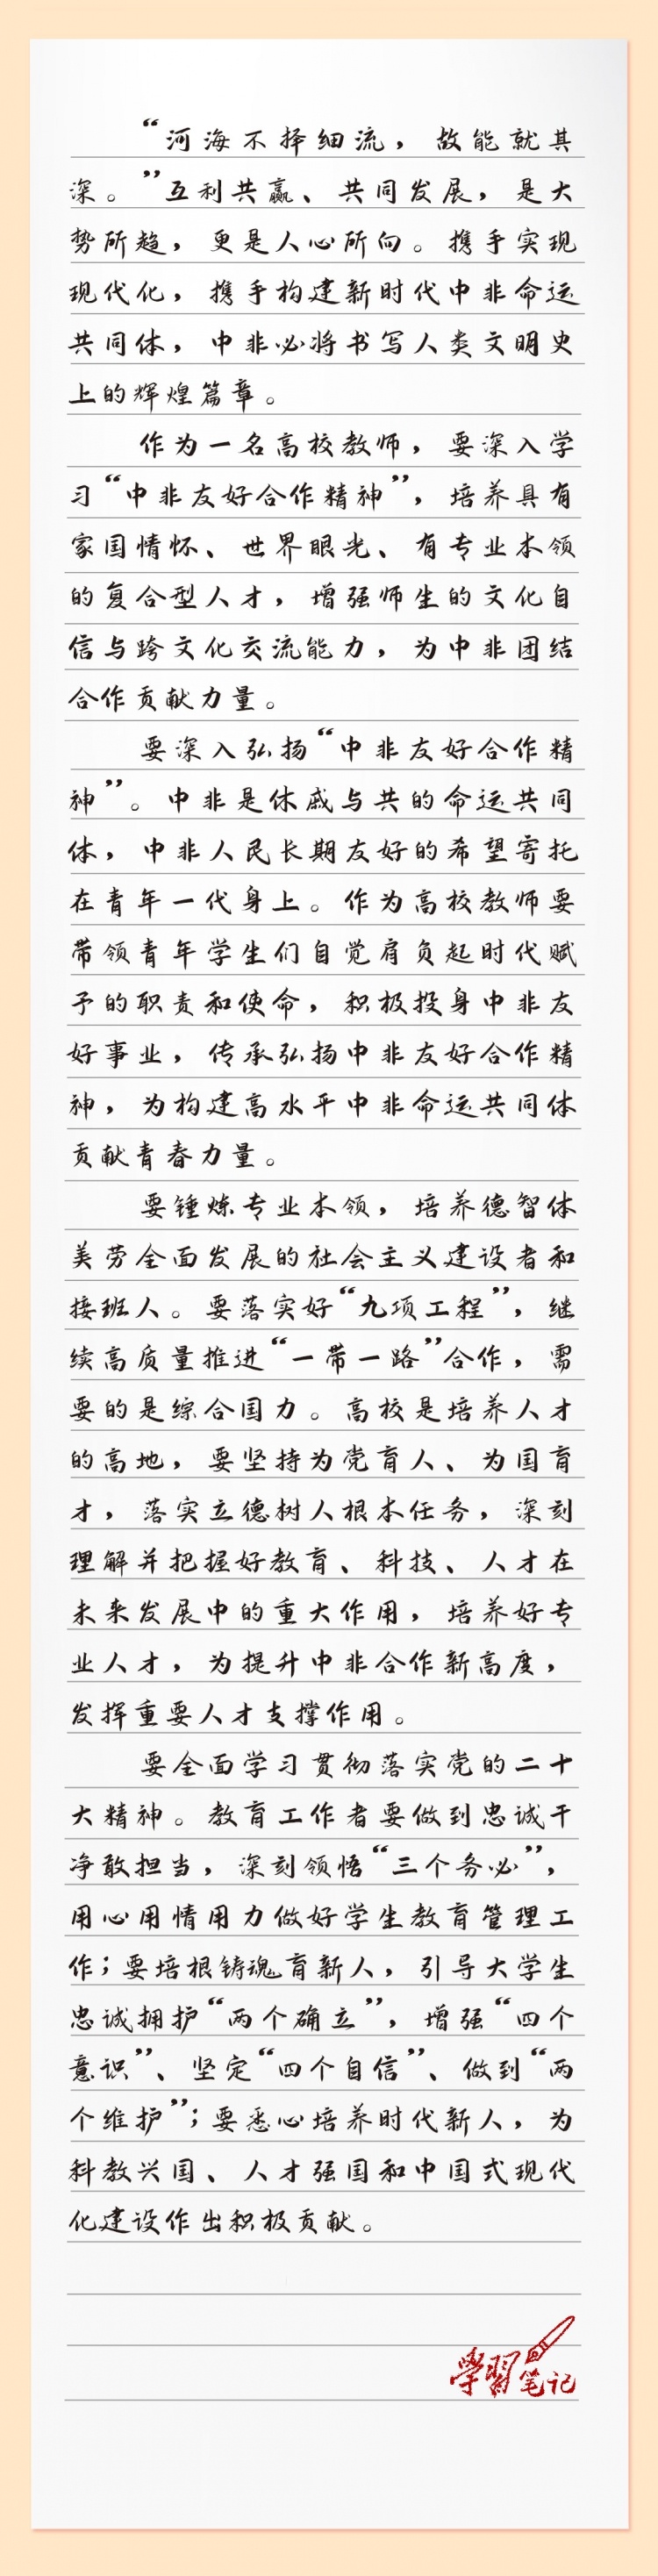 “河海不择细流，故能就其
深。”互利共赢、共同发展，是大
势所趋，更是人心所向。携手实现
现代化，携手构建新时代中非命运
共同体，中非必将书写人类文明史
上的辉煌篇章。
作为一名高校教师，要深入学
习“中非友好合作精神”，培养具有
家国情怀、世界眼光、有专业本领
的复合型人才，增强师生的文化自
信与跨文化交流能力，为中非团结
合作贡献力量。
要深入弘扬“中非友好合作精
神”。中非是休戚与共的命运共同
体，中非人民长期友好的希望寄托
在青年一代身上。作为高校教师要
带领青年学生们自觉肩负起时代赋
予的职责和使命，积极投身中非友
好事业，传承弘扬中非友好合作精
神，为构建高水平中非命运共同体
贡献青春力量。
要锤炼专业本领，培养德智体
美劳全面发展的社会主义建设者和
接班人。要落实好“九项工程”，继
续高质量推进“一带一路”合作，需
要的是综合国力。高校是培养人才
的高地，要坚持为党育人、为国育
才，落实立德树人根本任务，深刻
理解并把握好教育、科技、人才在
未来发展中的重大作用，培养好专
业人才，为提升中非合作新高度，
发挥重要人才支撑作用。
要全面学习贯彻落实党的二十
大精神。教育工作者要做到忠诚干
净敢担当，深刻领悟“三个务必”，
用心用情用力做好学生教育管理工
作；要培根铸魂育新人，引导大学生
忠诚拥护“两个确立”，增强“四个
意识”、坚定“四个自信”、做到“两
个维护”；要悉心培养时代新人，为
科教兴国、人才强国和中国式现代
化建设作出积极贡献。
學習笔记